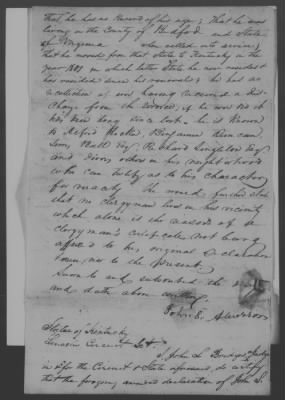 that he has no Record of his age; that he was
living in the County of Bedford and State
of Virginia when called into service,
that he moved from that State to Kentucky in the
year in which latter State he now resides &
has resided since his removal; he has no
recollection of ever having received a Dis-
charge from the service, if he ever did it
has been long since lost. he is known
to Benjamin Duncan,
and divers others in his neighborhood
who can testify as to his character
for veracity. He would further state
that no clergyman lives in his vicinity
which alone is the reason of a
clergyman's certificate not being
affixed to his original Declaration
nor to the present.
Sworn to and subscribed the
and date above written.
John S.
State of Kentucky
Circuit Sct
I, John L Bridges Judge
in & for the Circuit & State aforesaid, do certify
that the foregoing amended declaration of John S.